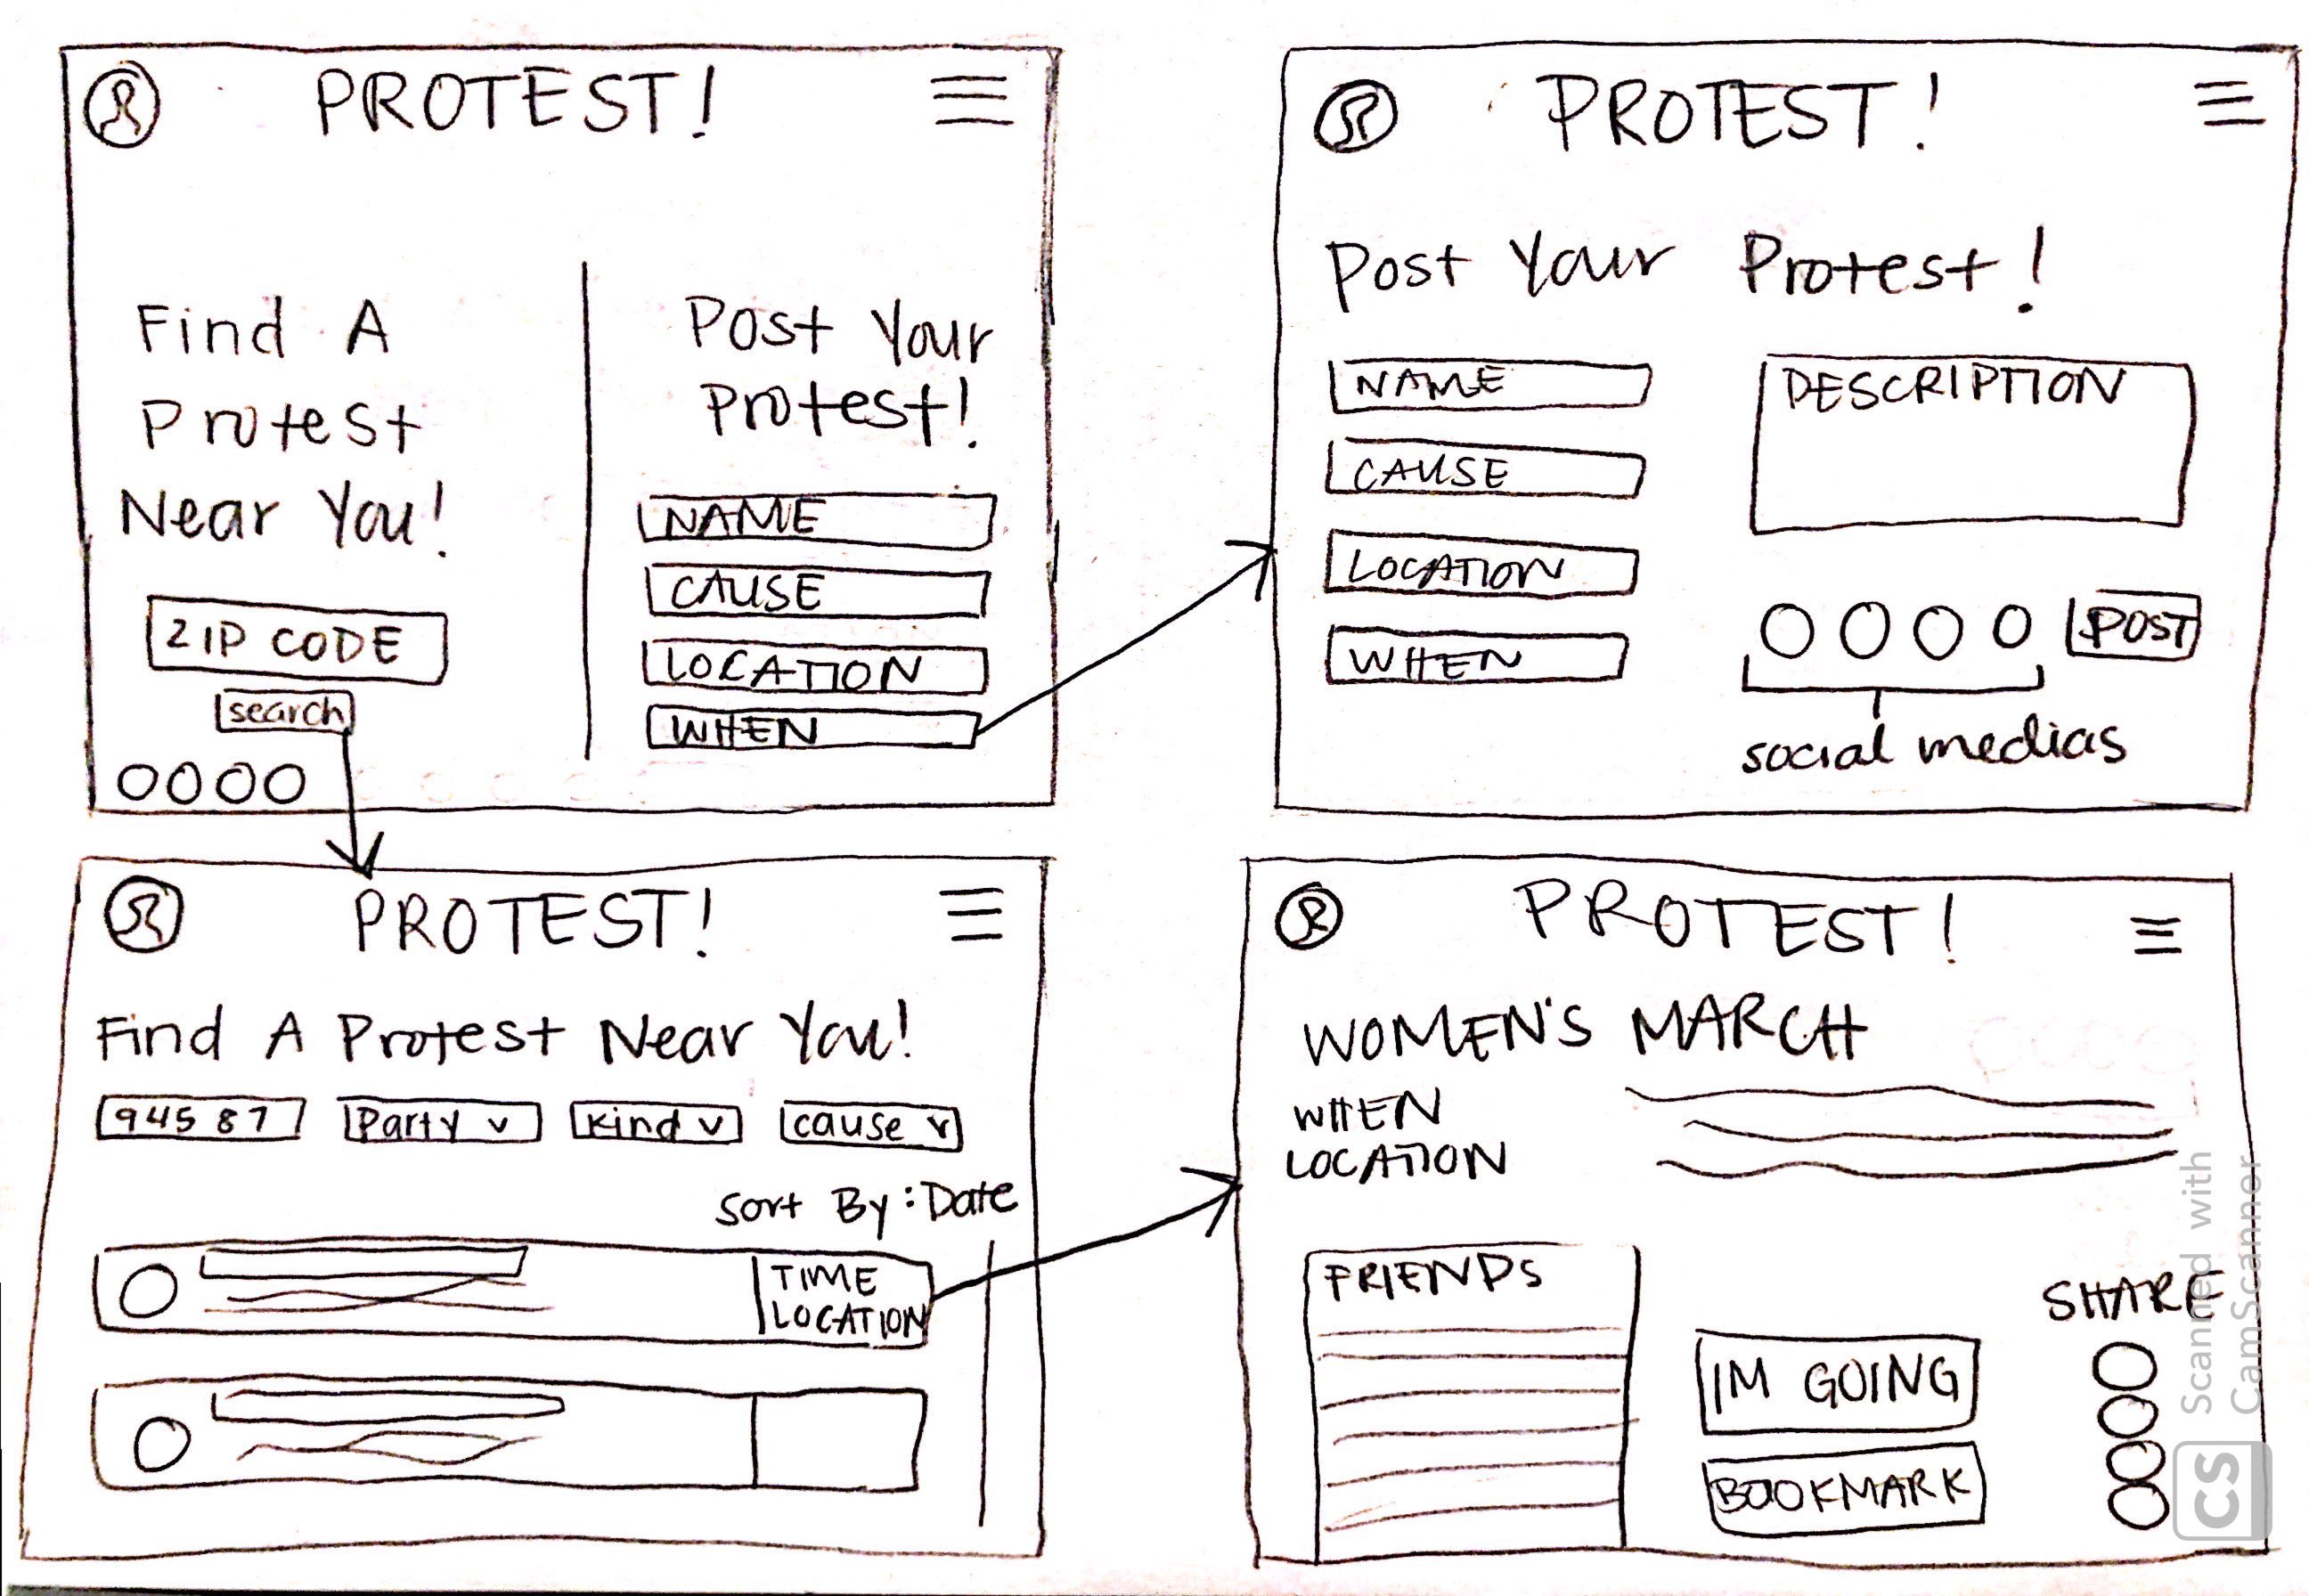 PROTEST!
Find A
Protest
Near You!
ZIP CODE
search
Post Your
Protest!
NAME
CAUSE
LOCATION
WHEN
PROTEST!
Post Your Protest!
NAME
CAUSE
LOCATION
WHEN
DESCRIPTION
POST
social medias
PROTEST!
Find A Protest Near You!
94587 Party v Kind v cause v
Sort By: Date
TIME
LOCATION
PROTEST!
WOMEN'S MARCH
WHEN
LOCATION
FRIENDS
IM GOING
BOOKMARK
SHARE
CS
Scanned with
CamScanner